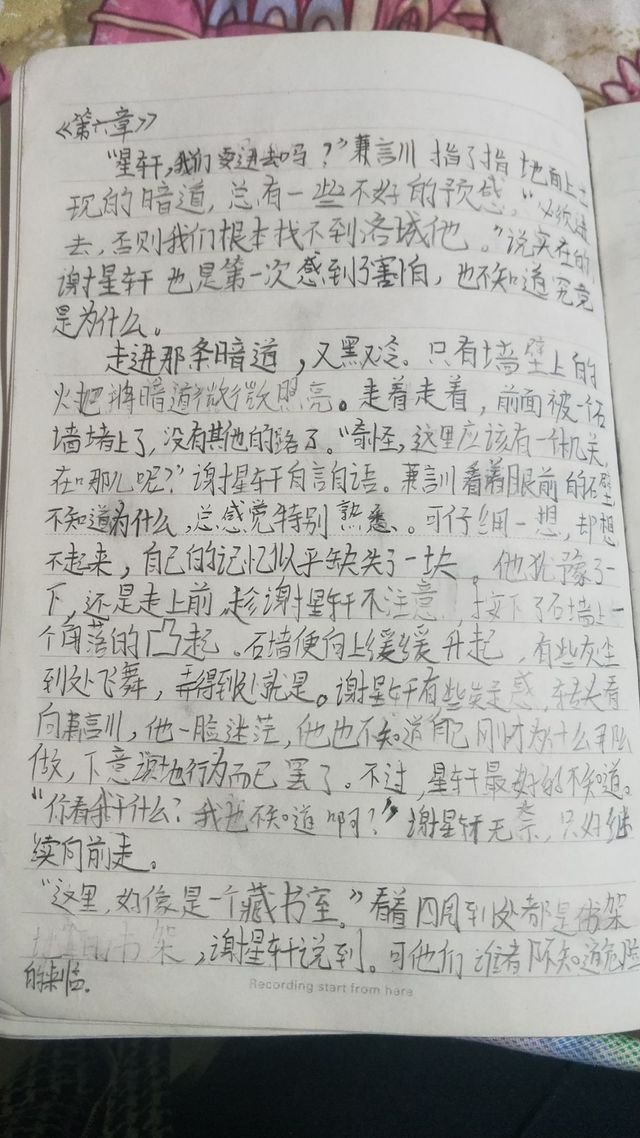 《第六章》
“星轩,我们要进去吗？”兼言川 指了指 地面上出
现的暗道, 总有一些不好的预感,“必须进
去, 否则我们根本找不到洛城他。”说实在的
谢星轩 也是第一次感到了害怕, 也不知道究竟
是为什么。
走进那条暗道, 又黑又冷。只有墙壁上的
火把将暗道微微照亮。走着走着, 前面被一石
墙堵上了, 没有其他的路了。“奇怪, 这里应该有一个机关,
在哪儿呢？”谢星轩自言自语。兼言川看着眼前的石壁
不知道为什么, 总感觉特别熟悉。可仔细一想, 却想
不起来, 自己的记忆似乎缺失了一块。他犹豫了一
下, 还是走上前, 趁谢星轩不注意, 按下了石墙上一
个角落的凸起。石墙便向上缓缓升起, 有些灰尘
到处飞舞, 弄得到处就是。谢星轩有些 感, 转头看
向兼言川, 他一脸迷茫, 他也不知道自己刚才为什么那么
做, 下意识地行为而已罢了。不过, 星轩最好的不知道。
“你看我干什么？我也不知道啊？”谢星轩无奈, 只好继
续向前走。
“这里, 好像是一个藏书室。”看着四周到处都是书架
书架, 谢星轩说到。可他们谁都不知道危险
的来临。
Recording start from here